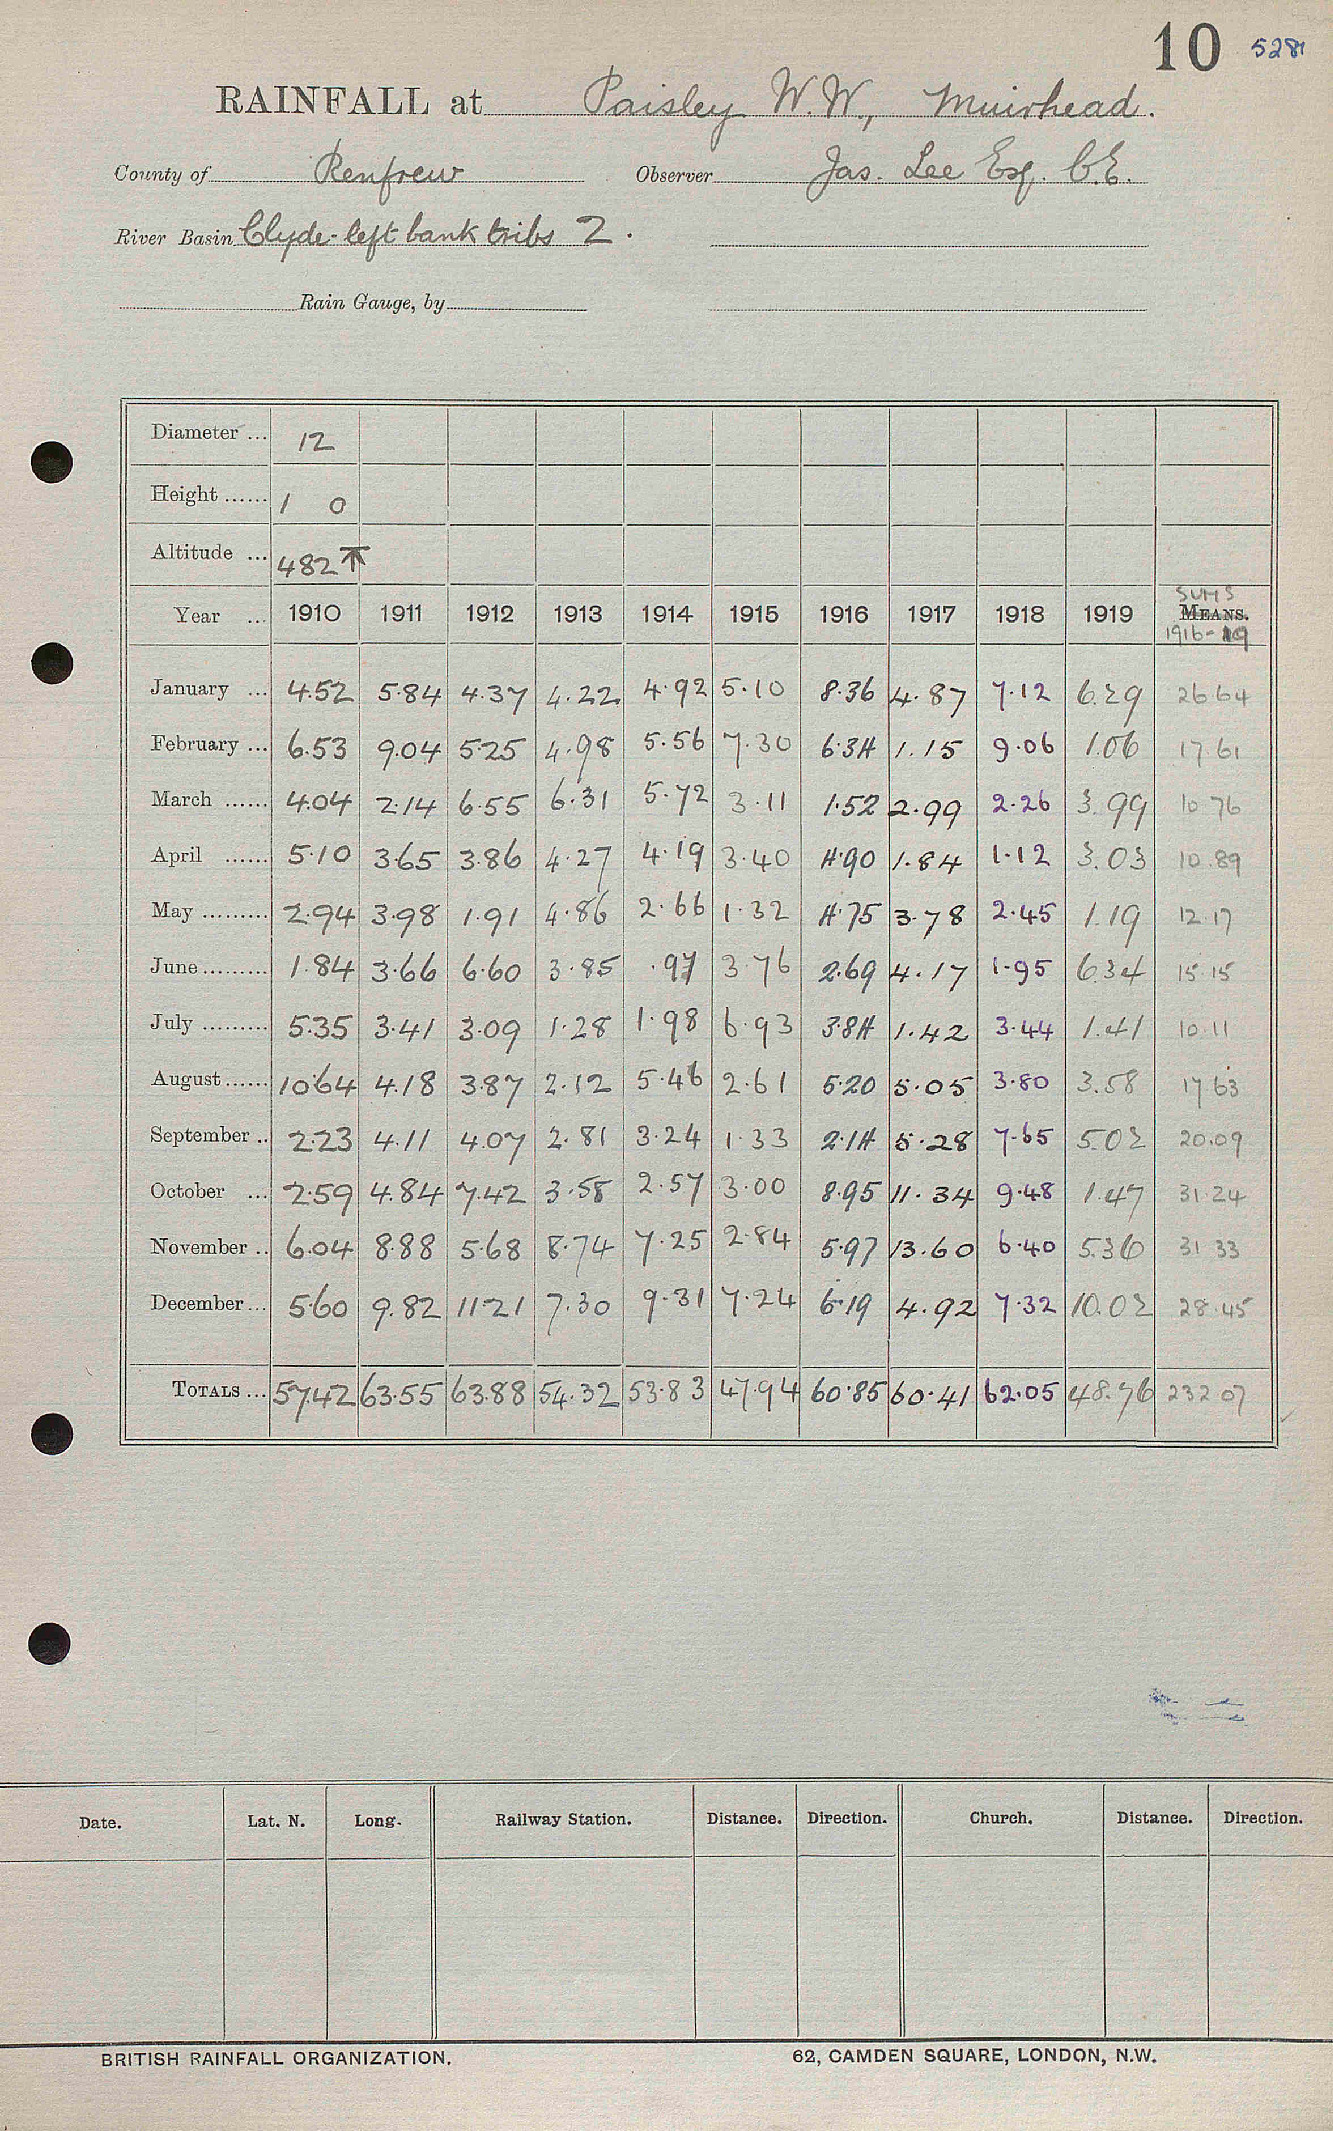 10 5281
RAINFALL at Paisley W.W., Muirhead.
County of Renfrew Observer Jas. Lee Esq. C.E.
River Basin Clyde-left bank tribs 2.
Rain Gauge, by
Diameter ... 12
Height ...... 1 0
Altitude ... 482 ↑
SUMS
Year ... 1910 1911 1912 1913 1914 1915 1916 1917 1918 1919 MEANS.
1916-19
January ... 4.52 5.84 4.37 4.22 4.92 5.10 8.36 4.87 7.12 6.29 26.64
February ... 6.53 9.04 5.25 4.98 5.56 7.30 6.34 1.15 9.06 1.06 17.61
March ...... 4.04 2.14 6.55 6.31 5.72 3.11 1.52 2.99 2.26 3.99 10.76
April ...... 5.10 3.65 3.86 4.27 4.19 3.40 4.90 1.84 1.12 3.03 10.89
May ......... 2.94 3.98 1.91 4.86 2.66 1.32 4.75 3.78 2.45 1.19 12.17
June ......... 1.84 3.66 6.60 3.85 .97 3.76 2.69 4.17 1.95 6.34 15.15
July ......... 5.35 3.41 3.09 1.28 1.98 6.93 3.84 1.42 3.44 1.41 10.11
August ...... 10.64 4.18 3.87 2.12 5.46 2.61 5.20 5.05 3.80 3.58 17.63
September .. 2.23 4.11 4.07 2.81 3.24 1.33 2.14 5.28 7.65 5.02 20.09
October ... 2.59 4.84 7.42 3.58 2.57 3.00 8.95 11.34 9.48 1.47 31.24
November .. 6.04 8.88 5.68 8.74 7.25 2.84 5.97 13.60 6.40 5.36 31.33
December ... 5.60 9.82 11.21 7.30 9.31 7.24 6.19 4.92 7.32 10.02 28.45
TOTALS ... 57.42 63.55 63.88 54.32 53.83 47.94 60.85 60.41 62.05 48.76 232.07
Date. Lat. N. Long. Railway Station. Distance. Direction. Church. Distance. Direction.
BRITISH RAINFALL ORGANIZATION. 62, CAMDEN SQUARE, LONDON, N.W.